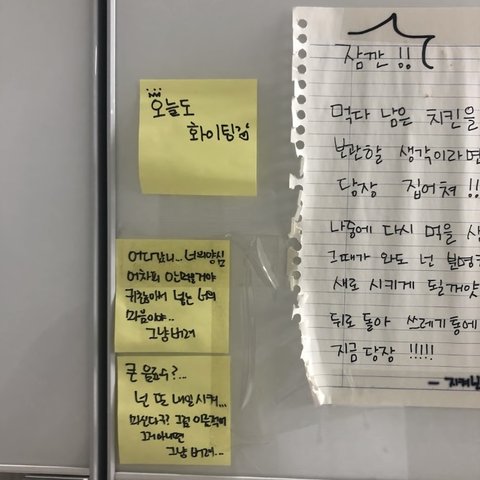 오늘도
화이팅
어디갔니... 너의양심
어차피 안먹을거야
귀찮아서 넣는 너의
마음이야..
그냥 버려
큰 음료수?...
넌 또 내일 시켜...
마신다구? 그럼 이름적어
그거아니면
그냥 버려...
잠깐 !!
먹다 남은 치킨을
보관할 생각이라면
당장 집어쳐 !!
나중에 다시 먹을
그때가 와도 넌 분명
새로 시키게 될거얏
뒤로 돌아 쓰레기통에
지금 당장 !!!!!